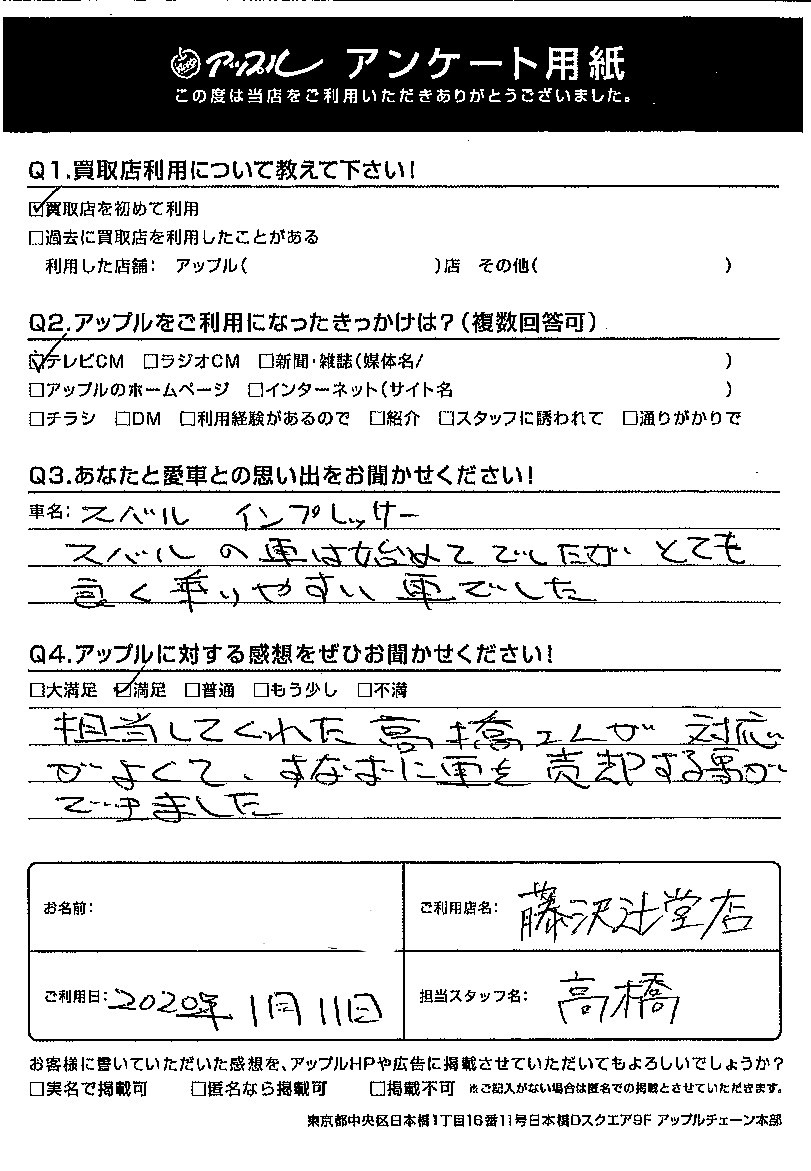 アップル アンケート用紙
この度は当店をご利用いただきありがとうございました。
Q1.買取店利用について教えて下さい!
☑買取店を初めて利用
□過去に買取店を利用したことがある
利用した店舗: アップル( )店 その他( )
Q2.アップルをご利用になったきっかけは?(複数回答可)
☑テレビCM □ラジオCM □新聞・雑誌(媒体名/ )
□アップルのホームページ □インターネット(サイト名 )
□チラシ □DM □利用経験があるので □紹介 □スタッフに誘われて □通りがかりで
Q3.あなたと愛車との思い出をお聞かせください!
車名: スバル インプレッサー
スバルの車は始めてでしたがとても
良く乗りやすい車でした
Q4.アップルに対する感想をぜひお聞かせください!
□大満足 ☑満足 □普通 □もう少し □不満
担当してくれた高橋さんが対応
がよくて、すなおに車を売却する事が
できました
お名前:
ご利用店名: 藤沢辻堂店
ご利用日: 2020年1月11日
担当スタッフ名: 高橋
お客様に書いていただいた感想を、アップルHPや広告に掲載させていただいてもよろしいでしょうか?
□実名で掲載可 □匿名なら掲載可 □掲載不可 ※ご記入がない場合は匿名での掲載とさせていただきます。
東京都中央区日本橋1丁目16番11号日本橋Dスクエア9F アップルチェーン本部